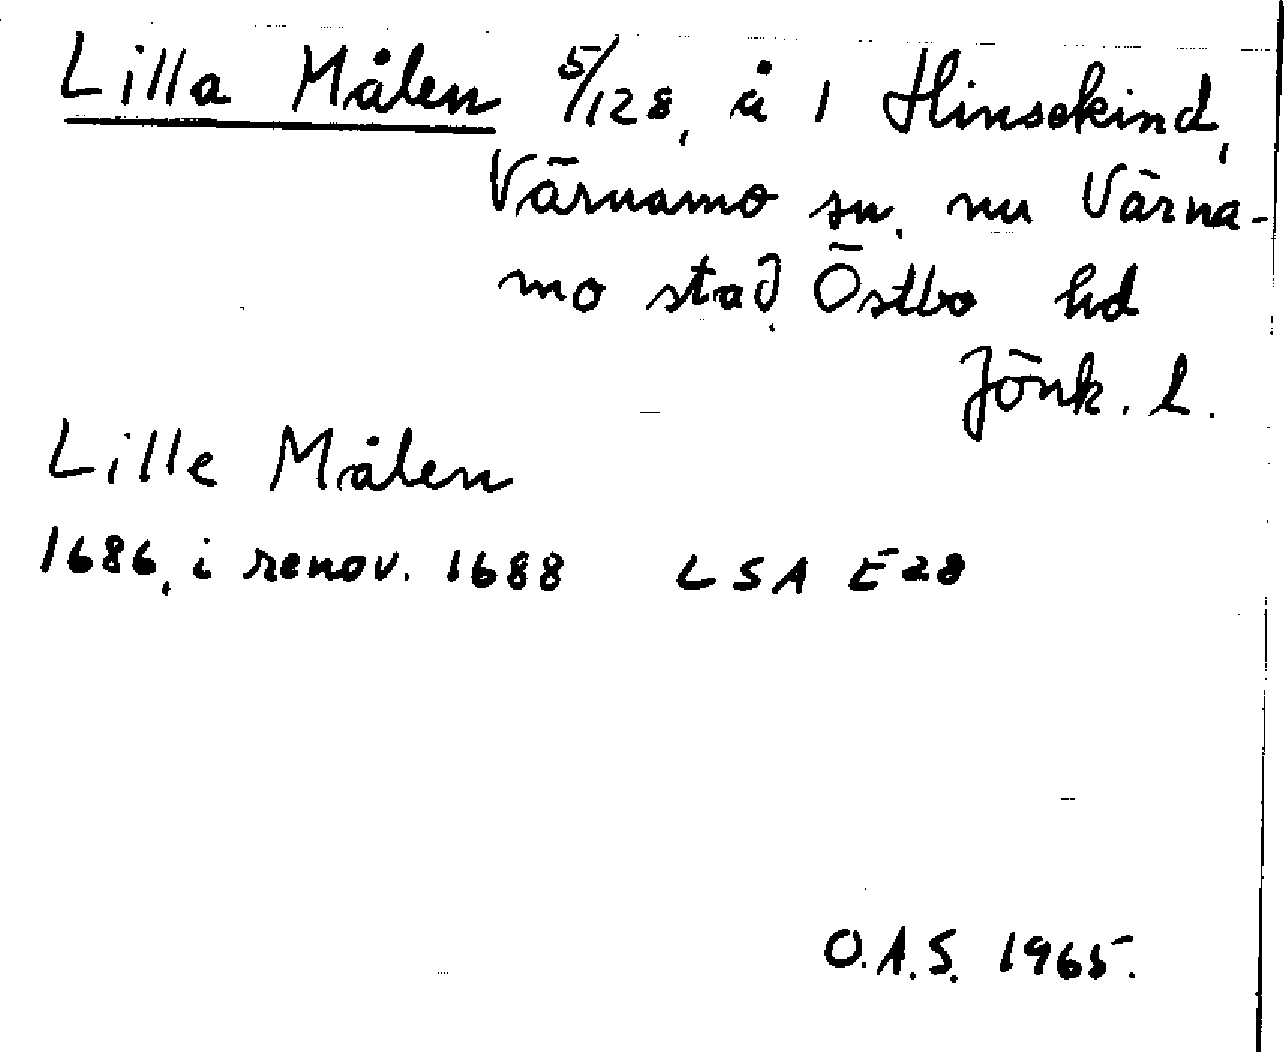 Lilla Målen 5/128, å 1 Hinsekind,
Värnamo sn. nu Värna-
mo stad, Östbo hd
Jönk. l.
Lille Målen
1686, i renov. 1688 LSA E28
O.A.S. 1965.